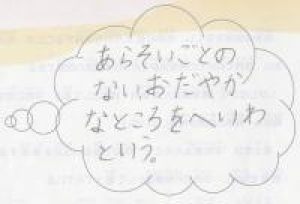 あらそいごとの
ないおだやか
なところをへいわ
という。